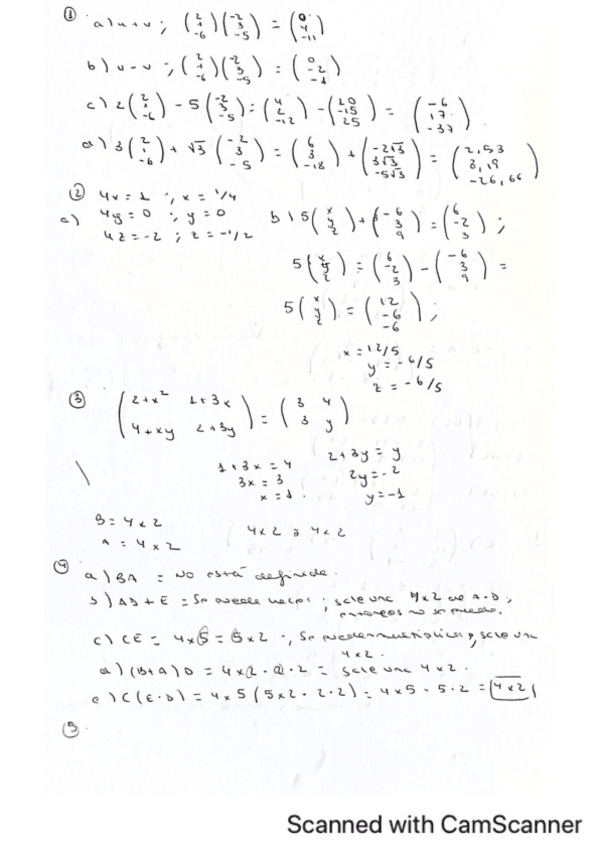 ① a) u+v ; (2 1 -6) (-2 3 -5) = (0 4 -11)
b) u-v ; (2 1 -6) (-2 3 -5) = (0 -2 -1)
c) 2 (2 1 -6) - 5 (-2 3 -5) = (4 2 -12) - (10 -15 25) = (-6 17 -37)
d) 3 (2 1 -6) + √3 (-2 3 -5) = (6 3 -18) + (-2√3 3√3 -5√3) = (2,53 8,19 -26,66)
② 4x = 1 ; x = 1/4
a) 4y = 0 ; y = 0
4z = -2 ; z = -1/2
b) 5 (x y z) + (-6 3 9) = (6 -2 3) ;
5 (x y z) = (6 -2 3) - (-6 3 9) =
5 (x y z) = (12 -6 -6) ;
x = 12/5
y = -6/5
z = -6/5
③ (2+x² 1+3x 4+xy 2+3y) = (3 4 3 y)
1+3x = 4
3x = 3
x = 1
2+3y = y
2y = -2
y = -1
B = 4x2
A = 4x2
4x2 2 4x2
④ a) BA = No está definida.
b) AD + E = Se puede ; sale una 4x2 de A·D ;
entonces no se puede.
c) CE = 4x5 = 5x2 ; Se pueden multiplicar y sale una
4x2.
d) (B+A) D = 4x2 · 2·2 = sale una 4x2.
e) C (E·D) = 4x5 (5x2 · 2·2) = 4x5 · 5·2 = 4x2
⑤
Scanned with CamScanner